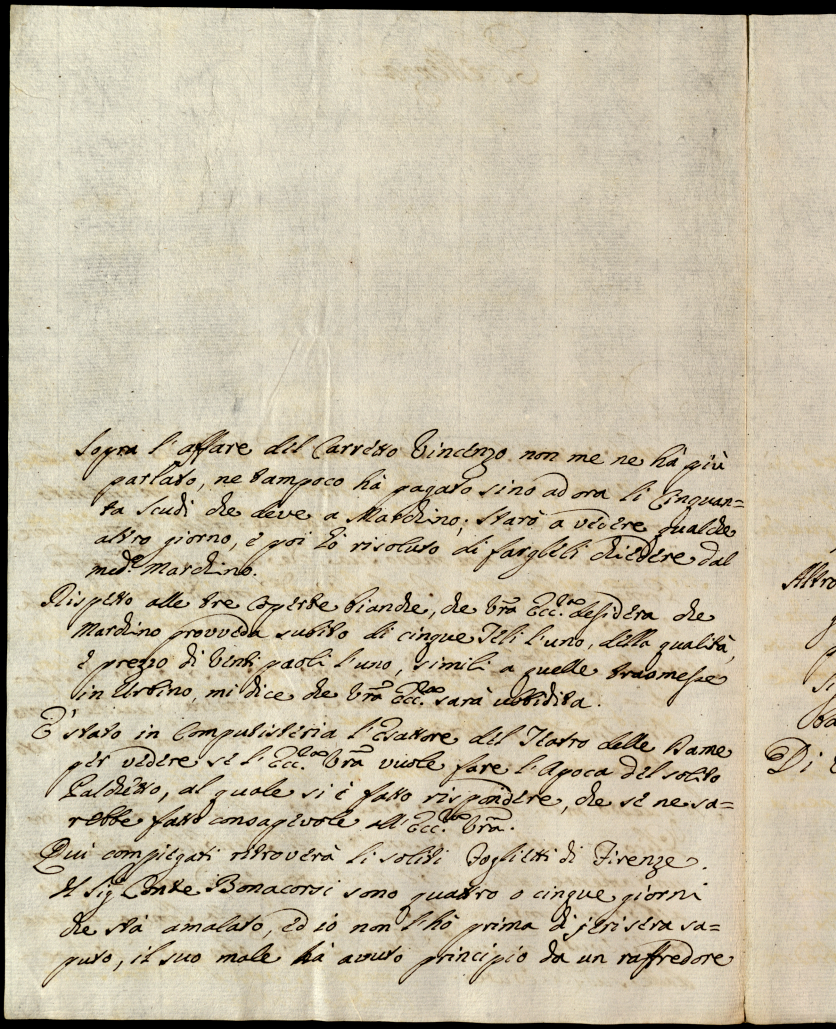 Sopra l'affare del Carretto Vincenzo non me ne hà più
parlato, ne tampoco hà pagato sino ad ora li Cinquan=
ta Scudi che deve a Marchino; starò a vedere qualche
altro giorno, e poi hò risoluto di fargleli chiedere dal
med.º Marchino.
Rispetto alle tre Coperte bianche, che Vrã Ecc.za desidera che
Marchino provveda subito di cinque Teli l'uno, della qualità,
e prezzo di Venti paoli l'uno, simili a quelle trasmesse
in Urbino, mi dice che Vrã Ecc.za sarà ubbidita.
E' stato in Computisteria l'Esattore del Teatro delle Dame
per vedere se l'Ecc.za Vrã vuole fare l'Apoca del solito
Palchetto, al quale si è fatto rispondere, che se ne sa=
rebbe fatto consapevole all'Ecc.za Vrã.
Qui compiegati ritroverà li soliti foglietti di Firenze.
Il Sig.r Conte Bonacorsi sono quattro o cinque giorni
che stà amalato, ed io non l'hò prima di jerisera sa=
puto, il suo male hà avuto principio da un raffredore
Altro
Di